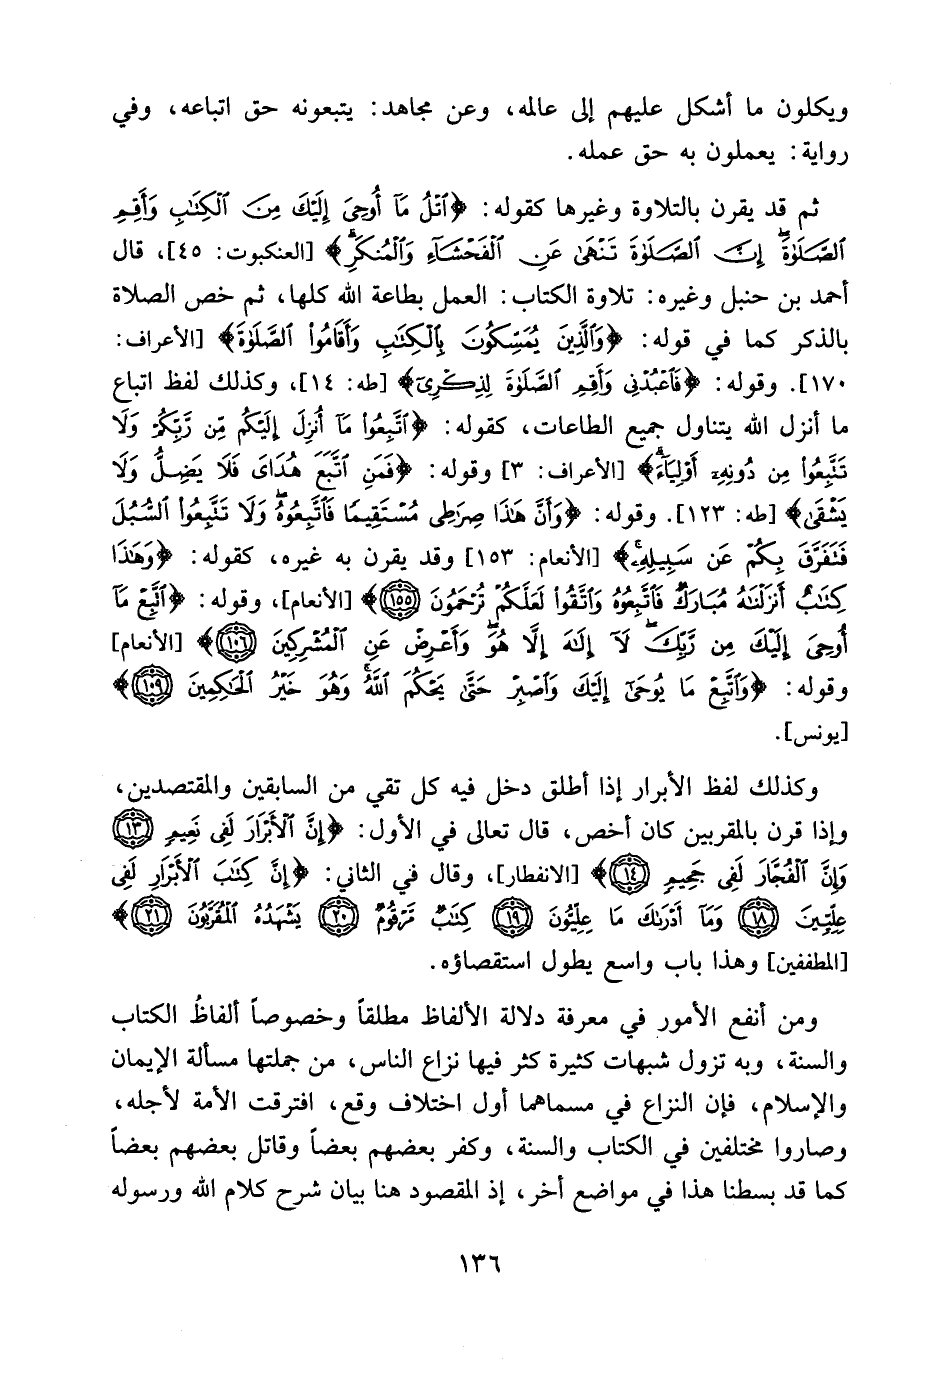 ويكلون ما أشكل عليهم إلى عالمه، وعن مجاهد: يتبعونه حق اتباعه، وفي
رواية: يعملون به حق عمله.
ثم قد يقرن بالتلاوة وغيرها كقوله: ﴿ٱتْلُ مَآ أُوحِىَ إِلَيْكَ مِنَ ٱلْكِتَٰبِ وَأَقِمِ
ٱلصَّلَوٰةَ ۖ إِنَّ ٱلصَّلَوٰةَ تَنْهَىٰ عَنِ ٱلْفَحْشَآءِ وَٱلْمُنكَرِ ۗ﴾ [العنكبوت: ٤٥]، قال
أحمد بن حنبل وغيره: تلاوة الكتاب: العمل بطاعة الله كلها، ثم خص الصلاة
بالذكر كما في قوله: ﴿وَٱلَّذِينَ يُمَسِّكُونَ بِٱلْكِتَٰبِ وَأَقَامُوا۟ ٱلصَّلَوٰةَ﴾ [الأعراف:
١٧٠]. وقوله: ﴿فَٱعْبُدْنِى وَأَقِمِ ٱلصَّلَوٰةَ لِذِكْرِىٓ﴾ [طه: ١٤]، وكذلك لفظ اتباع
ما أنزل الله يتناول جميع الطاعات، كقوله: ﴿ٱتَّبِعُوا۟ مَآ أُنزِلَ إِلَيْكُم مِّن رَّبِّكُمْ وَلَا
تَتَّبِعُوا۟ مِن دُونِهِۦٓ أَوْلِيَآءَ ۗ﴾ [الأعراف: ٣] وقوله: ﴿فَمَنِ ٱتَّبَعَ هُدَاىَ فَلَا يَضِلُّ وَلَا
يَشْقَىٰ﴾ [طه: ١٢٣]. وقوله: ﴿وَأَنَّ هَٰذَا صِرَٰطِى مُسْتَقِيمًا فَٱتَّبِعُوهُ ۖ وَلَا تَتَّبِعُوا۟ ٱلسُّبُلَ
فَتَفَرَّقَ بِكُمْ عَن سَبِيلِهِۦ ۚ﴾ [الأنعام: ١٥٣] وقد يقرن به غيره، كقوله: ﴿وَهَٰذَا
كِتَٰبٌ أَنزَلْنَٰهُ مُبَارَكٌ فَٱتَّبِعُوهُ وَٱتَّقُوا۟ لَعَلَّكُمْ تُرْحَمُونَ ١٥٥﴾ [الأنعام]، وقوله: ﴿ٱتَّبِعْ مَآ
أُوحِىَ إِلَيْكَ مِن رَّبِّكَ ۖ لَآ إِلَٰهَ إِلَّا هُوَ ۖ وَأَعْرِضْ عَنِ ٱلْمُشْرِكِينَ ١٠٦﴾ [الأنعام]
وقوله: ﴿وَٱتَّبِعْ مَا يُوحَىٰٓ إِلَيْكَ وَٱصْبِرْ حَتَّىٰ يَحْكُمَ ٱللَّهُ ۚ وَهُوَ خَيْرُ ٱلْحَٰكِمِينَ ١٠٩﴾
[يونس].
وكذلك لفظ الأبرار إذا أطلق دخل فيه كل تقي من السابقين والمقتصدين،
وإذا قرن بالمقربين كان أخص، قال تعالى في الأول: ﴿إِنَّ ٱلْأَبْرَارَ لَفِى نَعِيمٍ ١٣
وَإِنَّ ٱلْفُجَّارَ لَفِى جَحِيمٍ ١٤﴾ [الانفطار]، وقال في الثاني: ﴿إِنَّ كِتَٰبَ ٱلْأَبْرَارِ لَفِى
عِلِّيِّينَ ١٨ وَمَآ أَدْرَىٰكَ مَا عِلِّيُّونَ ١٩ كِتَٰبٌ مَّرْقُومٌ ٢٠ يَشْهَدُهُ ٱلْمُقَرَّبُونَ ٢١﴾
[المطففين] وهذا باب واسع يطول استقصاؤه.
ومن أنفع الأمور في معرفة دلالة الألفاظ مطلقاً وخصوصاً ألفاظُ الكتاب
والسنة، وبه تزول شبهات كثيرة كثر فيها نزاع الناس، من جملتها مسألة الإيمان
والإسلام، فإن النزاع في مسماهما أول اختلاف وقع، افترقت الأمة لأجله،
وصاروا مختلفين في الكتاب والسنة، وكفر بعضهم بعضاً وقاتل بعضهم بعضاً
كما قد بسطنا هذا في مواضع أخر، إذ المقصود هنا بيان شرح كلام الله ورسوله
١٣٦